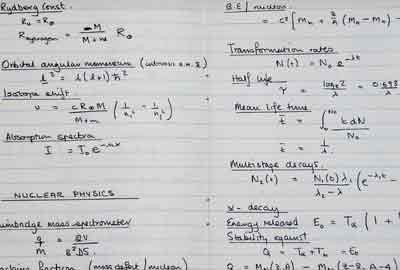 Rydberg Const.
R∞ = R∞
R_hydrogen = M / (M + m) R∞
Orbital angular momentum
l² = l(l+1)ħ²
Isotope shift
υ = cR∞M / (M+m) (1/n₁² − 1/n₂²)
Absorption spectra
I = I₀e
NUCLEAR PHYSICS
mass spectrometer
q/M = 2V / B²DS
fraction (mass defect / nucleon)
B.E / nucleon
= c² [Mₙ + Z/A (M_H − Mₙ) −
Transformation rates
N(t) = N₀ e^−λt
Half life
τ = log_e 2 / λ = 0.693
Mean life time
t̄ = ∫₀^N₀ t dN / N₀
t̄ = 1/λ
Multistage decays.
N₂(t) = N₁(0) λ₁ / (λ₂ − λ) (e^−λ₁t −
α - decay
Energy released E₀ = Tα (1 +
Stability against
Q = Tα + T = E₀
Q = M (Z, A) − M (Z-2, A-4)